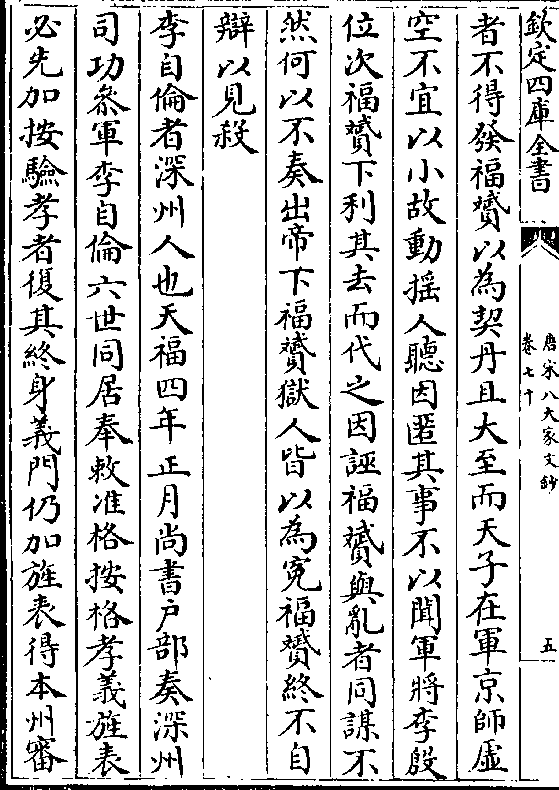 欽定四庫全書
唐宋八大家文鈔
卷七十
五
者不得發福贇以為契丹且大至而天子在軍京師虛
空不宜以小故動揺人聽因匿其事不以聞軍將李殷
位次福贇下利其去而代之因誣福贇與亂者同謀不
然何以不奏出帝下福贇獄人皆以為冤福贇終不自
辯以見殺
李自倫者深州人也天福四年正月尚書户部奏深州
司功叅軍李自倫六世同居奉敕准格按格孝義旌表
必先加按驗孝者復其終身義門仍加旌表得本州審